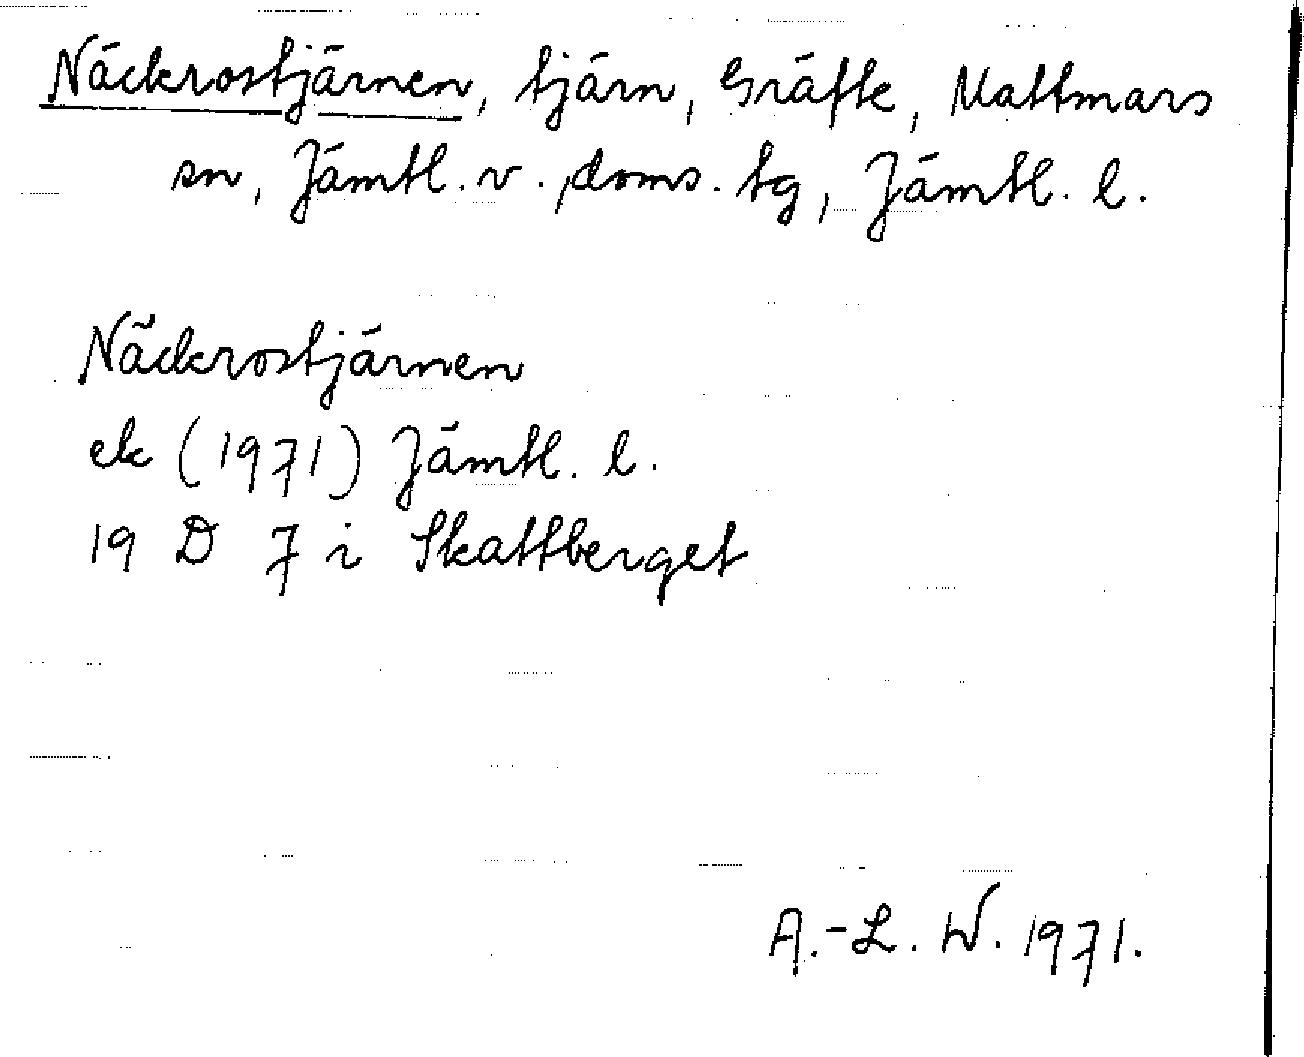 Näckrostjärnen, tjärn, Gräfte, Mattmars
sn, Jämtl. v., doms. tg, Jämtl. l.
Näckrostjärnen
ek (1971) Jämtl. l.
19 D 7 i Skattberget
A.-L. W. 1971.